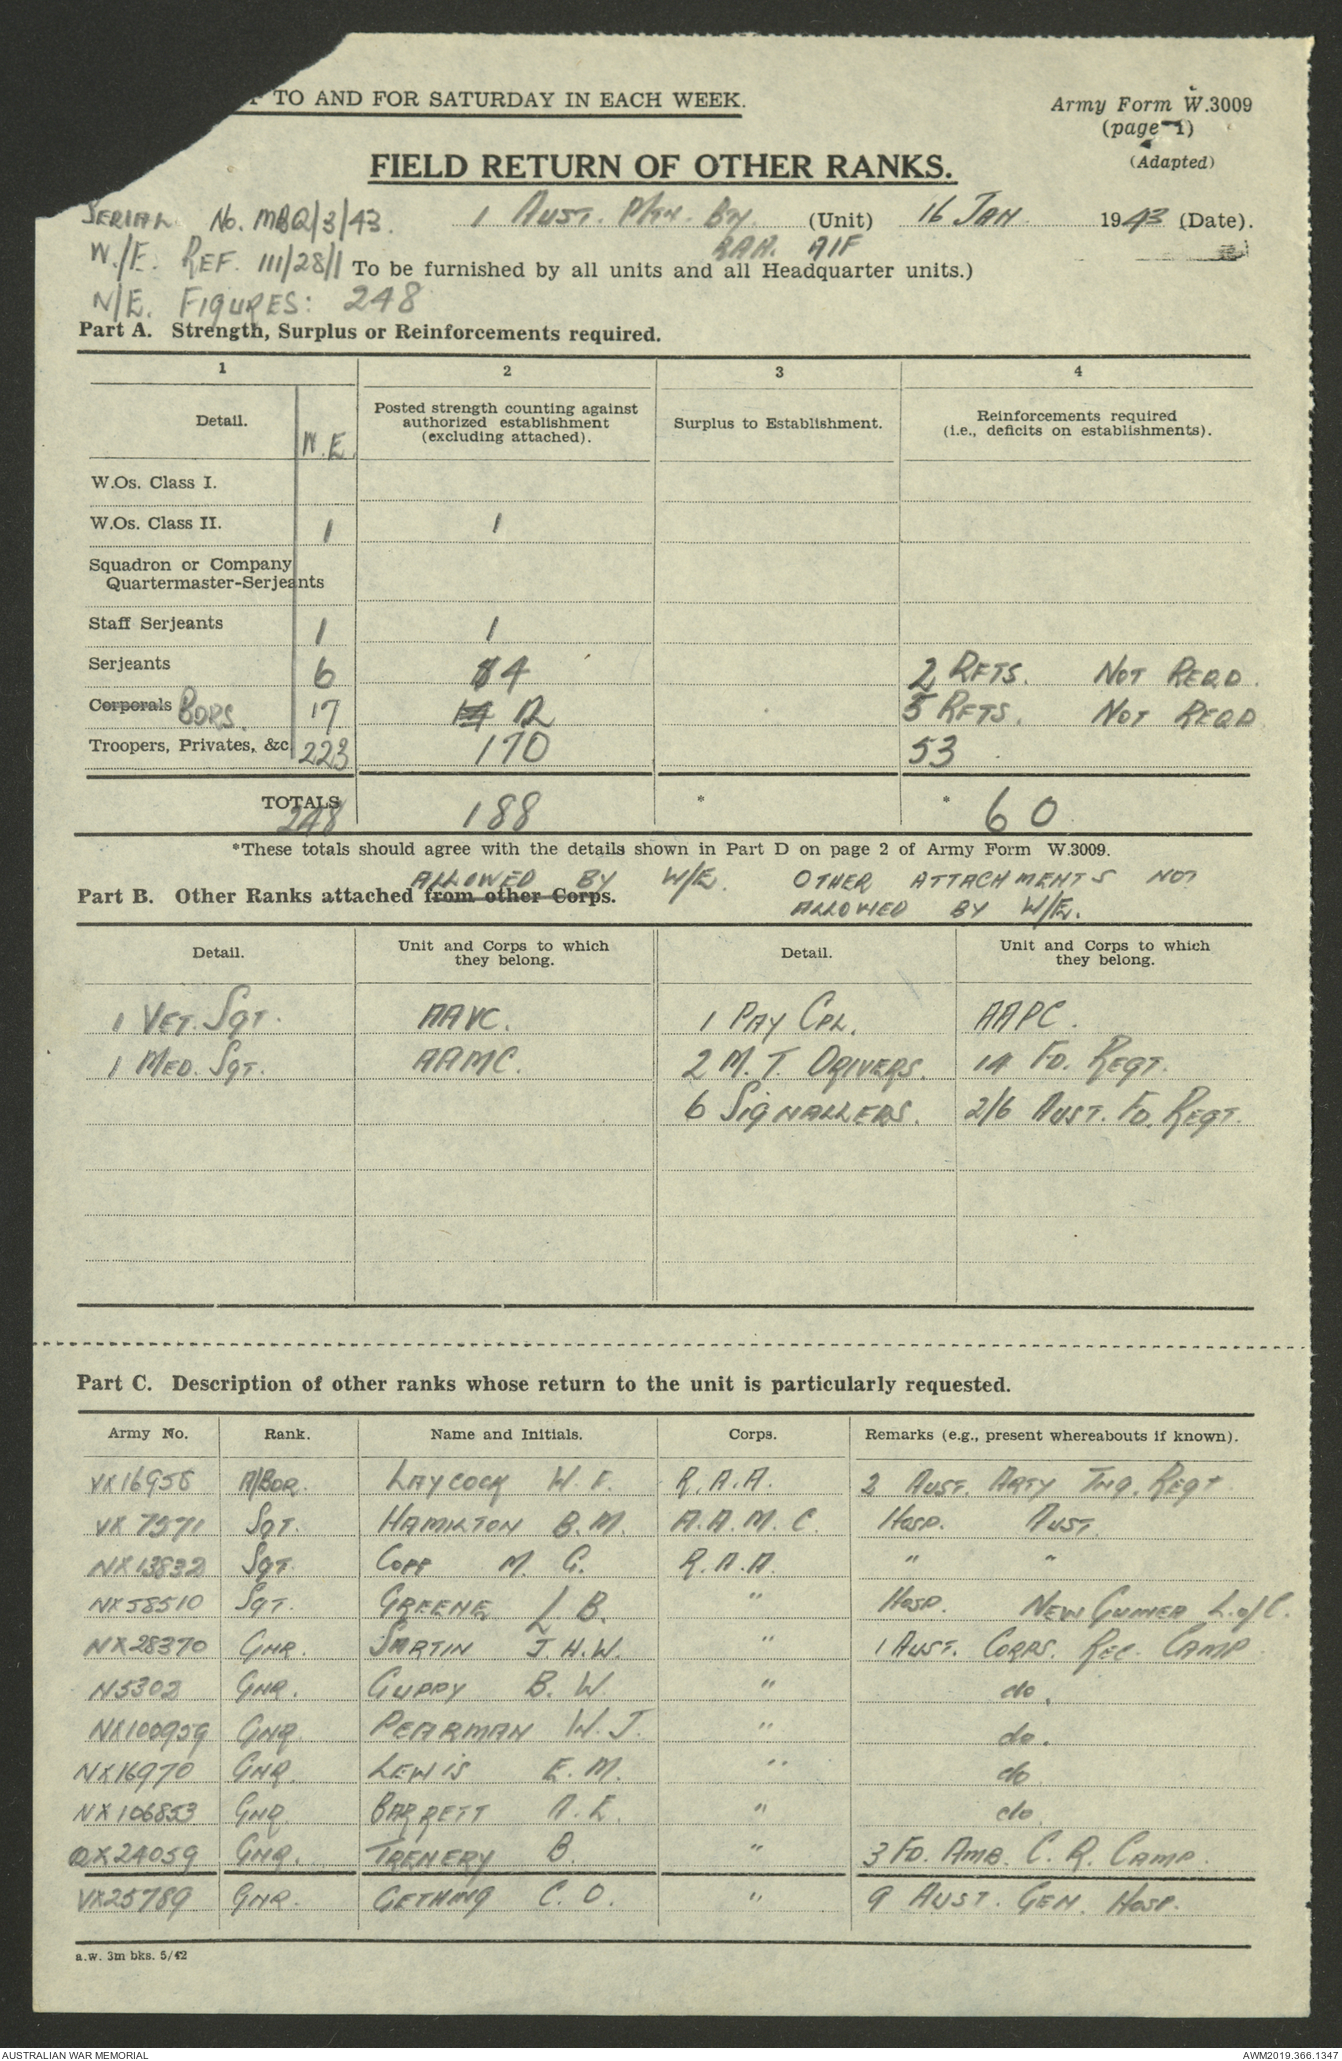 TO AND FOR SATURDAY IN EACH WEEK.
Army Form W.3009
(page 1)
(Adapted)
FIELD RETURN OF OTHER RANKS.
SERIAL No. MBQ/3/43. 1 AUST. Mtn. By. (Unit) 16 JAN 1943 (Date).
RAA. AIF
W./E. REF. 111/28/1 To be furnished by all units and all Headquarter units.)
N/E. FIGURES: 248
Part A. Strength, Surplus or Reinforcements required.
1 2 3 4
Detail. W.E. Posted strength counting against authorized establishment (excluding attached). Surplus to Establishment. Reinforcements required (i.e., deficits on establishments).
W.Os. Class I.
W.Os. Class II. 1 1
Squadron or Company
Quartermaster-Serjeants
Staff Serjeants 1 1
Serjeants 6 4 2 RFTS. NOT REQD.
Corporals BDRS. 17 12 5 RFTS. NOT REQD
Troopers, Privates, &c. 223 170 53
TOTALS 248 188 * * 60
*These totals should agree with the details shown in Part D on page 2 of Army Form W.3009.
ALLOWED BY W/E. OTHER ATTACHMENTS NOT
Part B. Other Ranks attached from other Corps. ALLOWED BY W/E.
Detail. Unit and Corps to which they belong. Detail. Unit and Corps to which they belong.
1 VET. SGT. AAVC. 1 PAY CPL. AAPC.
1 MED. SGT. AAMC. 2 M. T. DRIVERS. 14 FD. REGT.
6 SIGNALLERS. 2/6 AUST. FD. REGT.
Part C. Description of other ranks whose return to the unit is particularly requested.
Army No. Rank. Name and Initials. Corps. Remarks (e.g., present whereabouts if known).
VX16956 A/BDR. LAYCOCK W. F. R.A.A. 2 AUST. ARTY TNG. REGT
VX 7571 SGT. HAMILTON B.M. A.A.M.C. HOSP. AUST.
NX13832 SGT. COPP M. G. R.A.A. " "
NX58510 SGT. GREENE L. B. " HOSP. NEW GUINEA L.of C.
NX28370 GNR. SARTIN J.H.W. " 1 AUST. CORPS. REC. CAMP
N5302 GNR. GUPPY B. W. " do.
NX100959 GNR. PEARMAN W. J. " do.
NX16970 GNR. LEWIS E. M. " do
NX106853 GNR. BARRETT A. E. " do.
QX24059 GNR. TRENERY B. " 3 FD. AMB. C. R. CAMP.
VX25789 GNR. GETHING C. O. " 9 AUST. GEN. HOSP.
a.w. 3m bks. 5/42
AUSTRALIAN WAR MEMORIAL AWM2019.366.1347